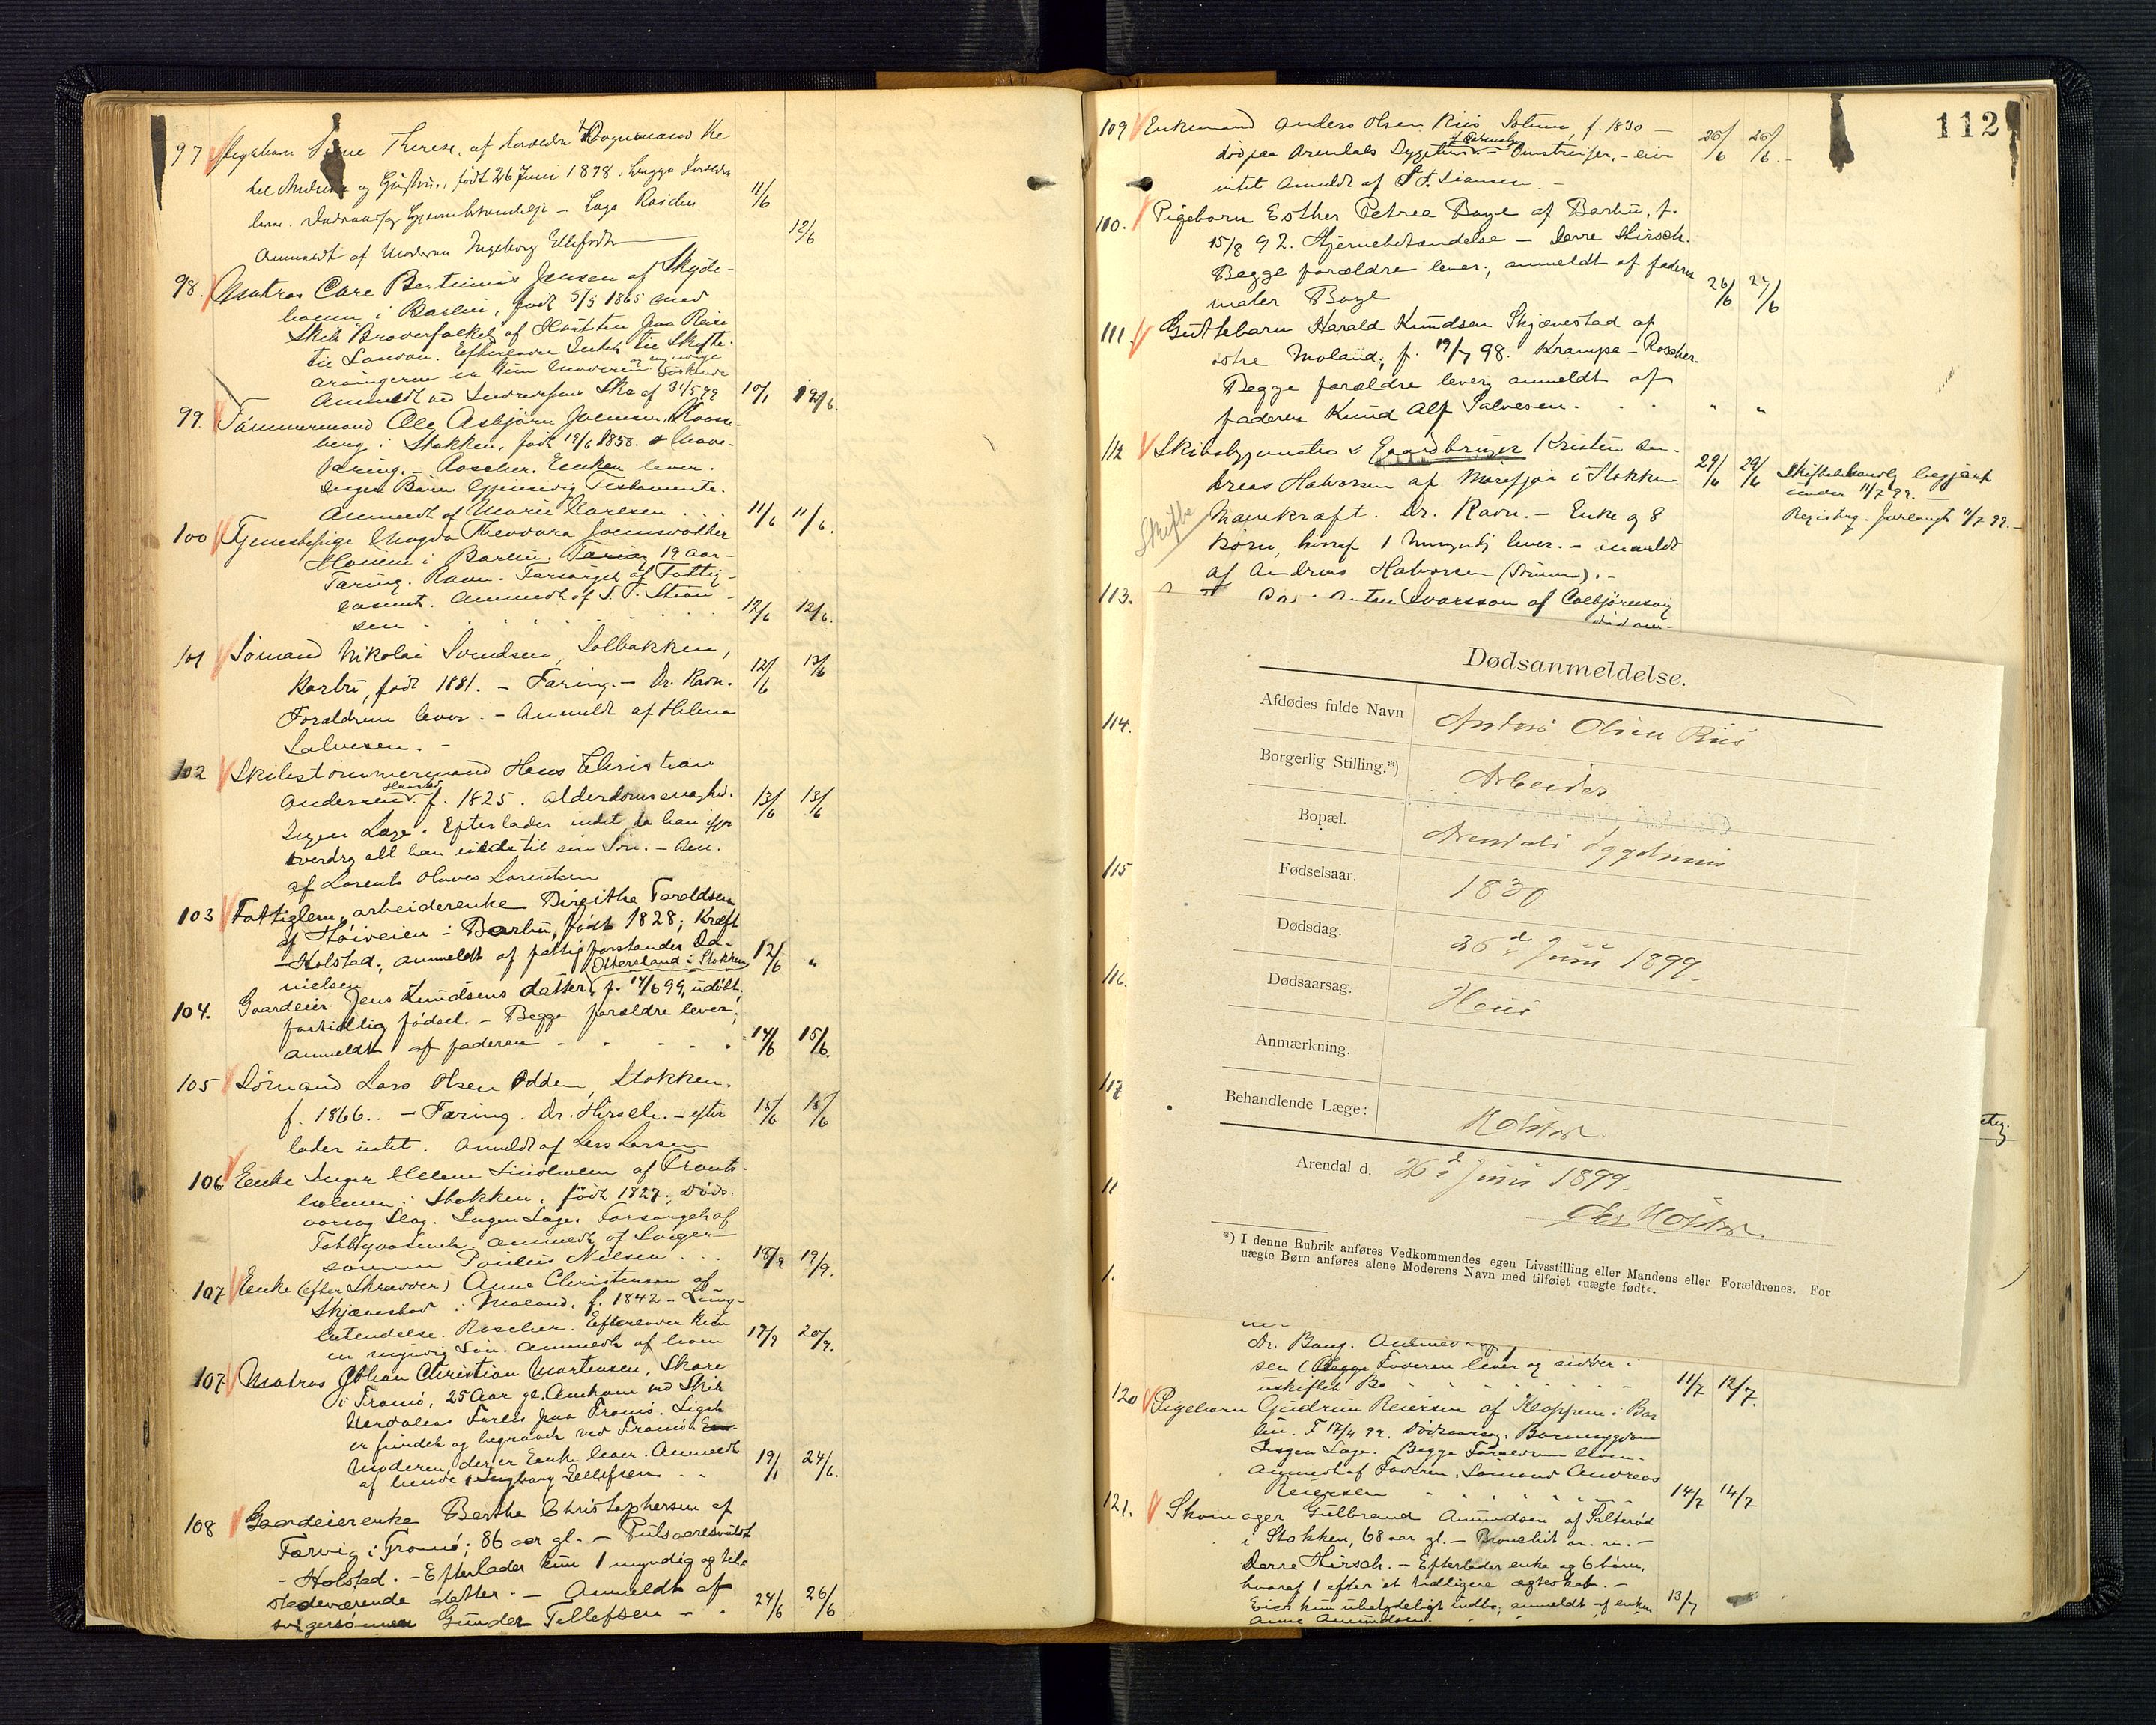 97 Pigebarn Signe Therese, af Forældre Vognmand Ke
født 26 Juni 1898. begge Forældre
lever.
Anmeldt af Moderen Ingeborg Ellefsdtr
11/6 12/6
98. Matros Carl Bertinius Jensen af Skyde-
holmen i Barbu, født 5/5 1865 med
Skib "Braverfolket" af Paa Reise
til London. Efterlader Intet til Skifte.
Anmeldt ved Skr. af 31/5 99 10/1 12/6.
99. Tømmermand Ole Asbjørn Joensen
berg i Stokken, født 19/6 1858. Mave-
tæring. - Roscher. Enken lever.
Ingen Børn. Gjensidig Testamente.
Anmeldt af Marie Karlsen . . . 11/6 11/6.
100 Tjenestepige Magda Theodora Joensdatter
i Barbu. Tæring 19 Aar -
Tæring. Ravn. Forsørget af Fattig-
væsenet. Anmeldt af S. T. Stian-
sen . . . . . . 12/6 12/6.
101 Sømand Nikolai Svendsen, Solbakken,
Barbu, født 1881. - Tæring. - Dr. Ravn.
Forældrene lever. - Anmeldt af Helena
Salvesen. -
12/6 13/6
102 Skibstømmermand Hans Christian
Andersen f. 1825. Alderdomssvaghed.
Ingen Læge. Efterlader intet da han
overdrog alt han eiede til sin Søn. - Anm.
af Lorents Olaves Lorentsen
13/6 13/6
103 Fattiglem, arbeiderenke Birgithe Taraldsen
af Høiveien i Barbu, født 1828; Kræft
- Holstad; anmeldt af fattigforstander Da-
nielsen 12/6 "
104. Gaardeier Jens Knudsens datter, Ottersland i Stokken, f. 14/6 99, udøbt,
fortidlig fødsel. - Begge forældre lever;
anmeldt af faderen - - - - 14/6 15/6.
105 Sømand Lars Olsen Odden, Stokken.
f. 1866. - Tæring. Dr. Hirsch. - efter
lader intet. Anmeldt af Lars Larsen
15/6 15/6
106 Enke Inger Helene Lindholm af Tromts-
holmen i Stokken, født 1827, Døds-
aarsag Slag. Ingen Læge. Forsørget af
Fattigvæsenet, anmeldt af Sviger-
sønnen Paulus Nielsen . . . 18/9 19/9.
107 Enke (efter Skrædder) Anne Christensen af
Skjævestad i Moland, f. 1842 - Lung-
betendelse. Roscher. Efterlader kun
en myndig Søn. Anmeldt af ham 19/9 20/9.
107 Matros Johan Christian Mortensen, Skare
i Tromø, 25 Aar gl. Omkom ved Skib
Verdalens Forlis paa Tromø. Liget
er fundet og begravet ved Tromø.
Moderen, der er Enke lever. Anmeldt
af hende Ingborg Ellefsen . . 19/1 24/6.
108 Gaardeierenke Berthe Christophersen af
Færvig i Tromø; 86 aar gl. - Pulsaaresvulst
- Holstad. - Efterlader kun 1 myndig og til-
stedeværende datter. - Anmeldt af
svigersønnen Gunder Tellefsen - - 24/6 26/6
112
109 Enkemand Anders Olsen Riis f. 1830 -
død paa Arendals Sygehus. - Omstreifer, - eier
intet Anmeldt af S. T. Stiansen. -
26/6 26/6. -
110. Pigebarn Esther Petrea Boye af Barbu, f.
15/8 92. Hjernebetændelse - Dorre Hirsch.
Begge forældre lever; anmeldt af faderen
maler Boye 26/6 27/6
111. Guttebarn Harald Knudsen Skjævestad af
østre Moland; f. 19/7 98. Krampe - Roscher.
Begge forældre lever, anmeldt af
faderen Knud Alf Salvesen. . . " "
112 Skibsbygmester & Gaardbruger Kristen An-
dreas Halvorsen af Marefjær i Stokken
Mavekræft. Dr. Ravn. - Enke og 8
børn, hvoraf 1 umyndig lever. - Anmeldt
af Andreas Halvorsen (Sønnen). -
29/6 29/6
Skifte
Skiftebehandlg begjært
under 11/7 99. -
Registrg. forlangt 11/7 99. -
113. Ivarsson af Colbjørnsvig
114.
115
116.
117
11
1.
Dødsanmeldelse.
Afdødes fulde Navn Anders Olsen Riis
Borgerlig Stilling.*) Arbeider
Bopæl. Arendals Sygehus
Fødselsaar. 1830
Dødsdag. 26de Juni 1899.
Dødsaarsag.
Anmærkning.
Behandlende Læge: Holstad
Arendal d. 26d Juni 1899.
Holstad.
*) I denne Rubrik anføres Vedkommendes egen Livsstilling eller Mandens eller Forældrenes. For
uægte Børn anføres alene Moderens Navn med tilføiet «uægte født».
Dr. Bang.
sen (Begge Faderen lever og sidder i
uskiftet Bo . . . . . . 11/7 12/7.
120 Pigebarn Gudrun Reiersen af Kloppene i Bar
bu. F 17/4 99. Dødsaarsag: Barnesygdom
Ingen Læge. Begge Forældrene lever.
Anmeldt af Faderen, Sømand Andreas
Reiersen . . . . . . 14/7 14/7
121. Skomager Gulbrand Amundsen af Salterød
i Stokken, 68 aar gl. - Bronchit m. m. -
Dorre Hirsch. - Efterlader enke og 6 børn,
hvoraf 1 efter et tidligere ægteskab. -
Eier kun ubetydeligt indbo; anmeldt af enken
Anne Amundsen. 13/7